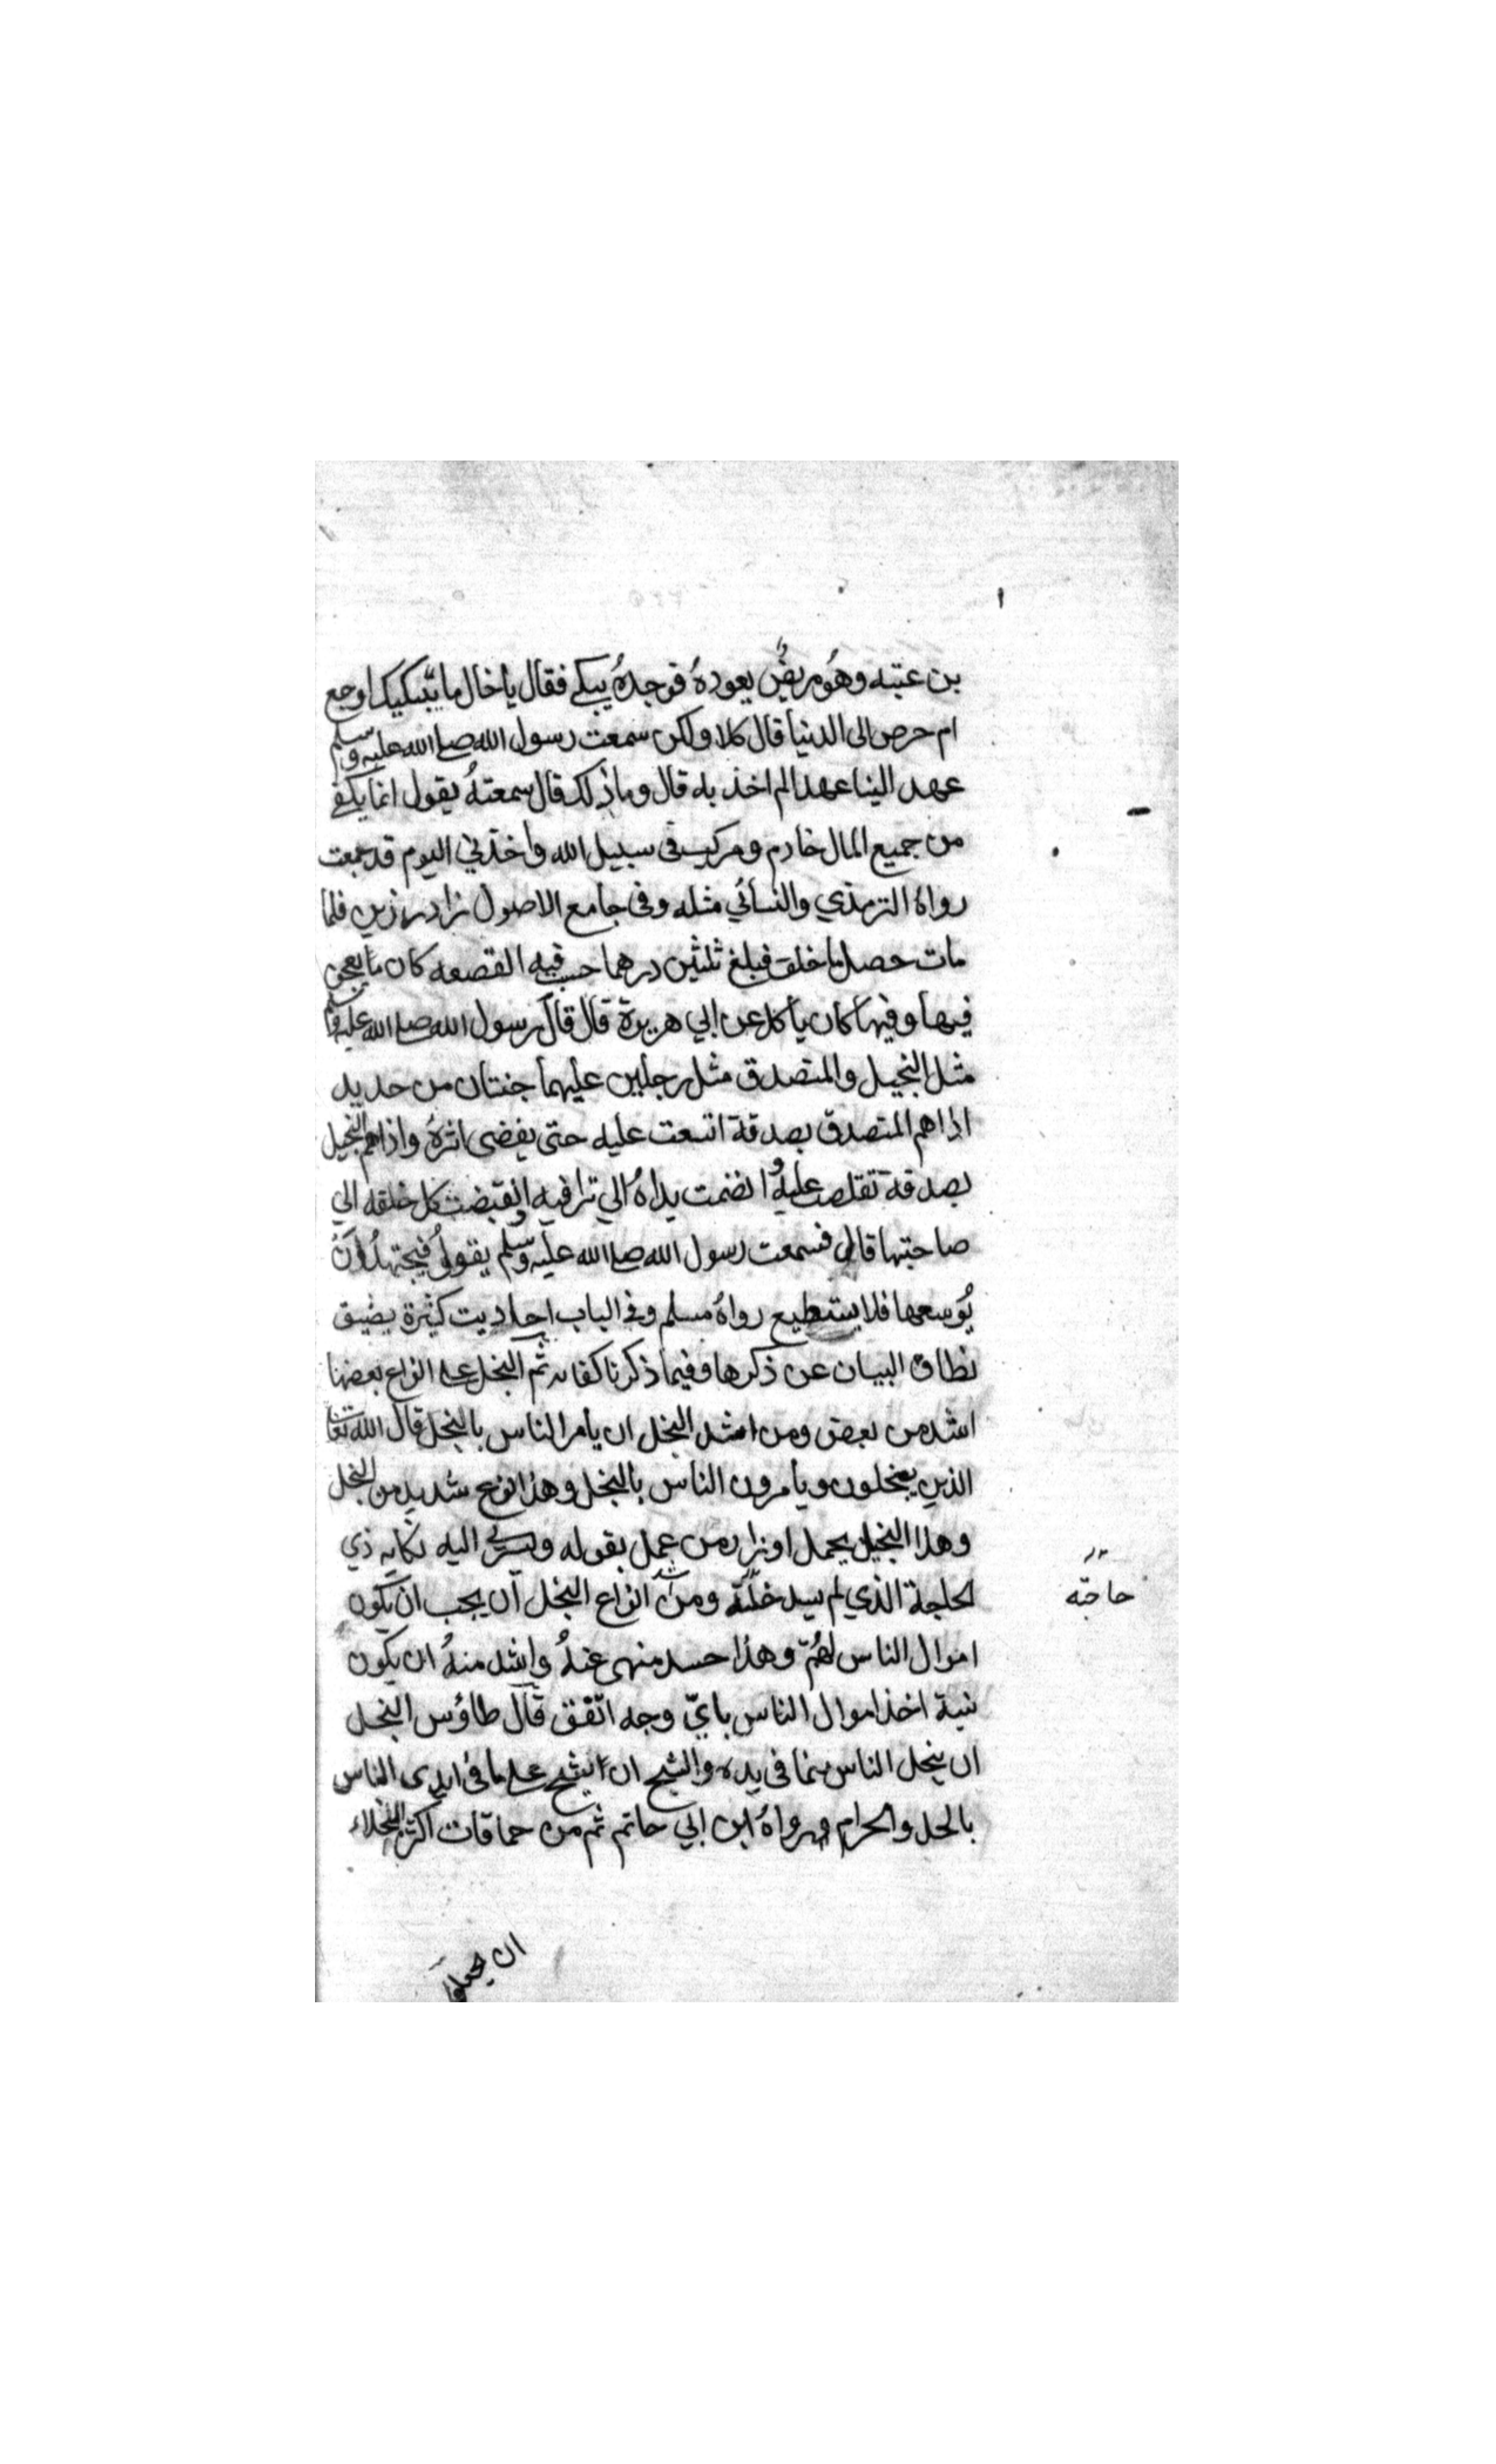 بن عتبه وهُو مريضٌ يعودهُ فوجدهُ يبكي فقال يا خال ما يبكيك اوجع
ام حرص الى الدنيا قال كلا ولكن سمعت رسول الله صلى الله عليه وسلم
عهد الينا عهدا لم اخذ به قال وما ذلك قال سمعتهُ يقول انما يكفى
من جميع المال خادم ومركب فى سبيل الله واخذني اليوم قد جمعت
رواهُ الترمذي والنسائي مثله وفى جامع الاصول زاد رزين فلما
مات حصل ما خلف فبلغ ثلثين درهما حسب فيه القصعه كان ما يعجن
فيها وفيها كان يأكل عن ابي هريرة قال قال رسول الله صلى الله عليه وسلم
مثل البخيل والمتصدق مثل رجلين عليهما جنتان من حديد
اذا هم المتصدق بصدقة اتسعت عليه حتى يفضى اثرهُ واذا هم البخيل
بصدقة تقلصت عليه وانضمت يداهُ الي تراقيه وانقبضت كل حلقه الي
صاحبتها قال فسمعت رسول الله صلى الله عليه وسلم يقول فيجتهدُ ان
يُوسعها فلا يستطيع رواهُ مسلم وفى الباب احاديث كثيرة يضيق
نطاق البيان عن ذكرها وفيما ذكرنا كفايه ثم البخل على انواع بعضها
اشد من بعض ومن اشد البخل ان يأمر الناس بالبخل قال الله تعالى
الذين يبخلون ويأمرون الناس بالبخل وهذا نوع شديد من البخل
وهذا البخيل يحمل اوزار من عمل بقوله ويسري اليه نكايه ذي
الحاجة الذي لم يسد خلّته ومن اشد انواع البخل ان يحب ان يكون
حاجته
اموال الناس لهُم وهذا حسد منهى عنهُ واشد منهُ ان يكون
نية اخذ اموال الناس بايّ وجه اتفق قال طاؤس البخل
ان يبخل الناس بما فى يده والشح ان يشح على ما فى ايدى الناس
بالحل والحرام رواهُ ابن ابي حاتم ثم من حماقات اكثر البخلاء
ان يجعلوا